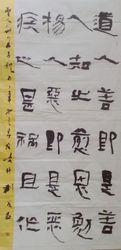 道人善即是善
人知之愈思勉
揚人惡即是惡
疾之甚禍且作